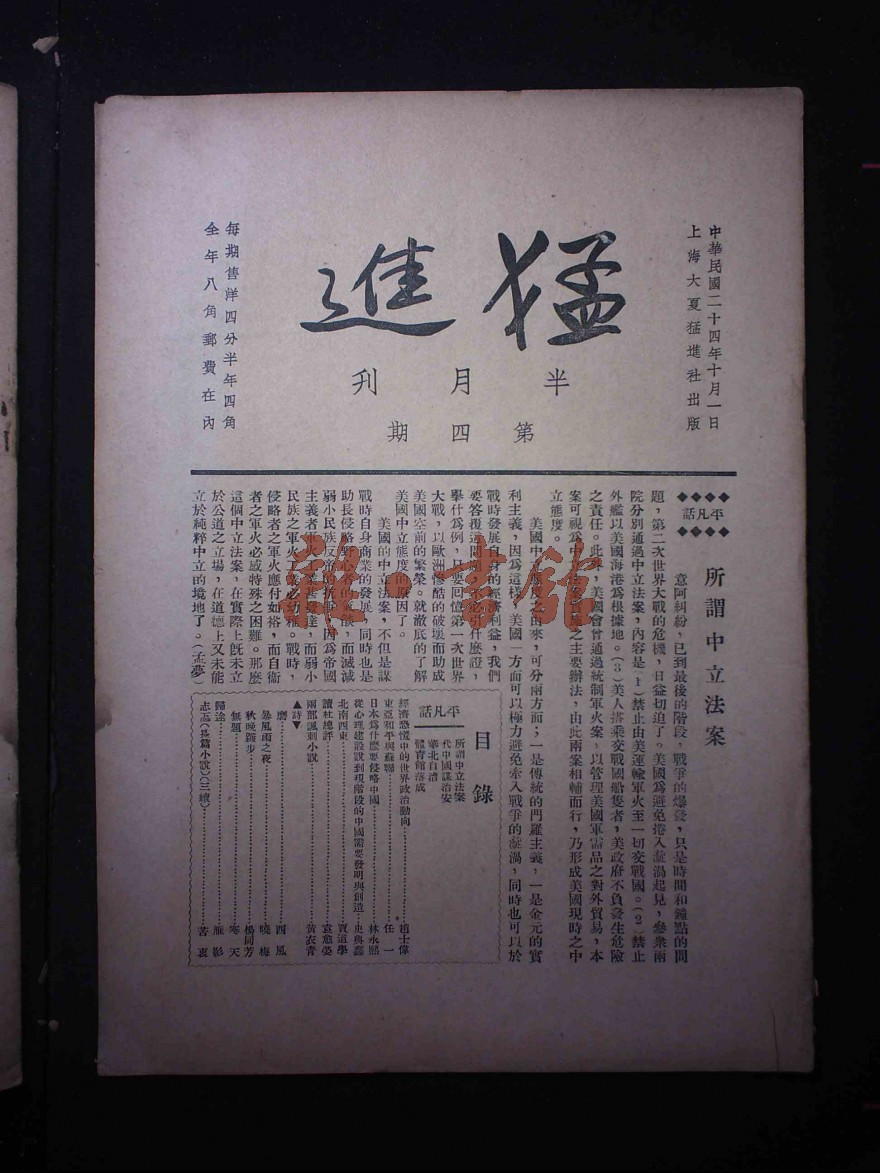 中華民國二十四年十月一日
上海大夏猛進社出版
猛進
半月刊
第四期
每期售洋四分半年四角
全年八角郵費在內
平凡話
所謂中立法案
意阿糾紛，已到最後的階段，戰爭的爆發，只是時間和鐘點的問
題，第二次世界大戰的危機，日益切迫了。美國爲避免捲入漩渦起見，參衆兩
院分別通過中立法案，內容是(1)禁止由美運輸軍火至一切交戰國。(2)禁止
外艦以美國海港爲根據地。(3)美人搭乘交戰國船隻者，美政府不負發生危險
之責任。此外，美國會曾通過統制軍火案，以管理美國軍需品之對外貿易，本
案可視爲中立法案實施之主要辦法，由此兩案相輔而行，乃形成美國現時之中
立態度。
美國中立態度之由來，可分兩方面；一是傳統的門羅主義，一是金元的實
利主義，因爲這樣，美國一方面可以極力避免牽入戰爭的漩渦，同時也可以於
戰時發展自身的經濟利益，我們
要答覆這問題，不必引什麼證，
舉什爲例，只要回憶第一次世界
大戰，以歐洲慘酷的破壞而助成
美國空前的繁榮。就澈底的了解
美國中立態度的原因了。
美國的中立法案，不但是謀
戰時自身商業的發展，同時也是
助長侵略野心者的氣燄，而滅減
弱小民族反帝的抗爭，因爲帝國
主義者軍火工業甚發達，而弱小
民族之軍火工業必幼稚。戰時，
侵略者之軍火應付如裕，而自衛
者之軍火必感特殊之困難。那麼
這個中立法案，在實際上既未立
於公道之立場，在道德上又未能
立於純粹中立的境地了。(孟夢)
目錄
平凡話
所謂中立法案
代中國謀治安
華北自清
體育館落成
經濟恐慌中的世界政治動向……趙士偉
東亞和平與蘇聯……任一
日本爲什麼要侵略中國……林永熙
從心理建設說到現階段的中國需要發明與創造……史與鑫
北南西東……賈道學
讀杜總評……袁愈嫈
兩部諷刺小說……黃衣青
▲詩▼
磨……西風
暴風雨之夜……曉梅
秋晚踱步……楊同芳
無題……寒天
歸途……雁影
志忑(長篇小說)(三續)……苦衷
龍·书館